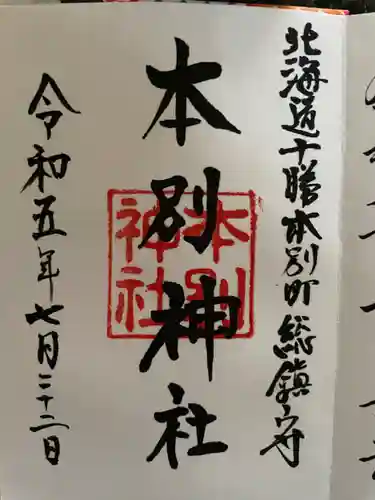 北海道十勝本別町総鎮守
本別神社
本別
神社
令和五年七月二十二日